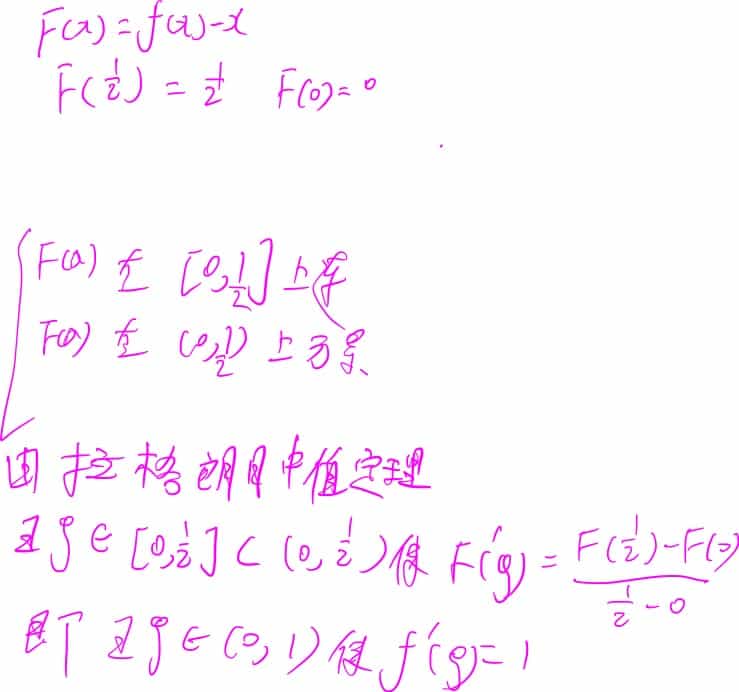 F(x)=f(x)-x
F(1/2)=1/2 F(0)=0
F(x) 在 [0,1/2] 上连
F(x) 在 (0,1/2) 上可导
由拉格朗日中值定理
∃ξ∈[0,1/2]⊂(0,1/2)使 F'(ξ)=(F(1/2)-F(0))/(1/2-0)
即∃ξ∈(0,1)使f'(ξ)=1